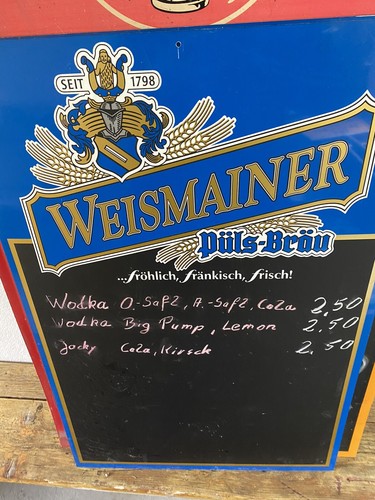 SEIT 1798
WEISMAINER
Püls-Bräu
...fröhlich, fränkisch, frisch!
Wodka O-Saft, A-Saft, Cola 2,50
Wodka Big Pump, Lemon 2.50
Jacky Cola, Kirsch 2.50